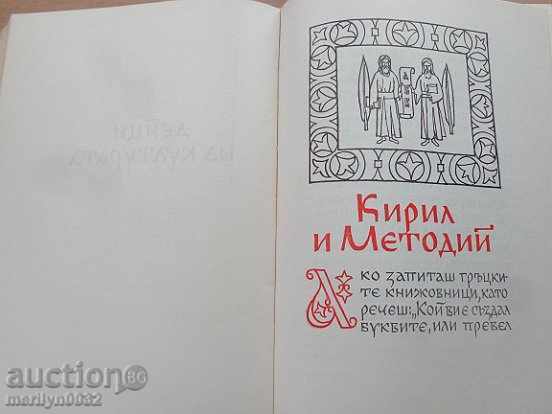 ДЕЙЦИ
НА КУЛТУРАТА
Кирил
и Методий
Ако запиташ гръцки-
те книжовници, като
речеш: „Кой ви е създал
буквите, или превел
auction BG
marilyn0032